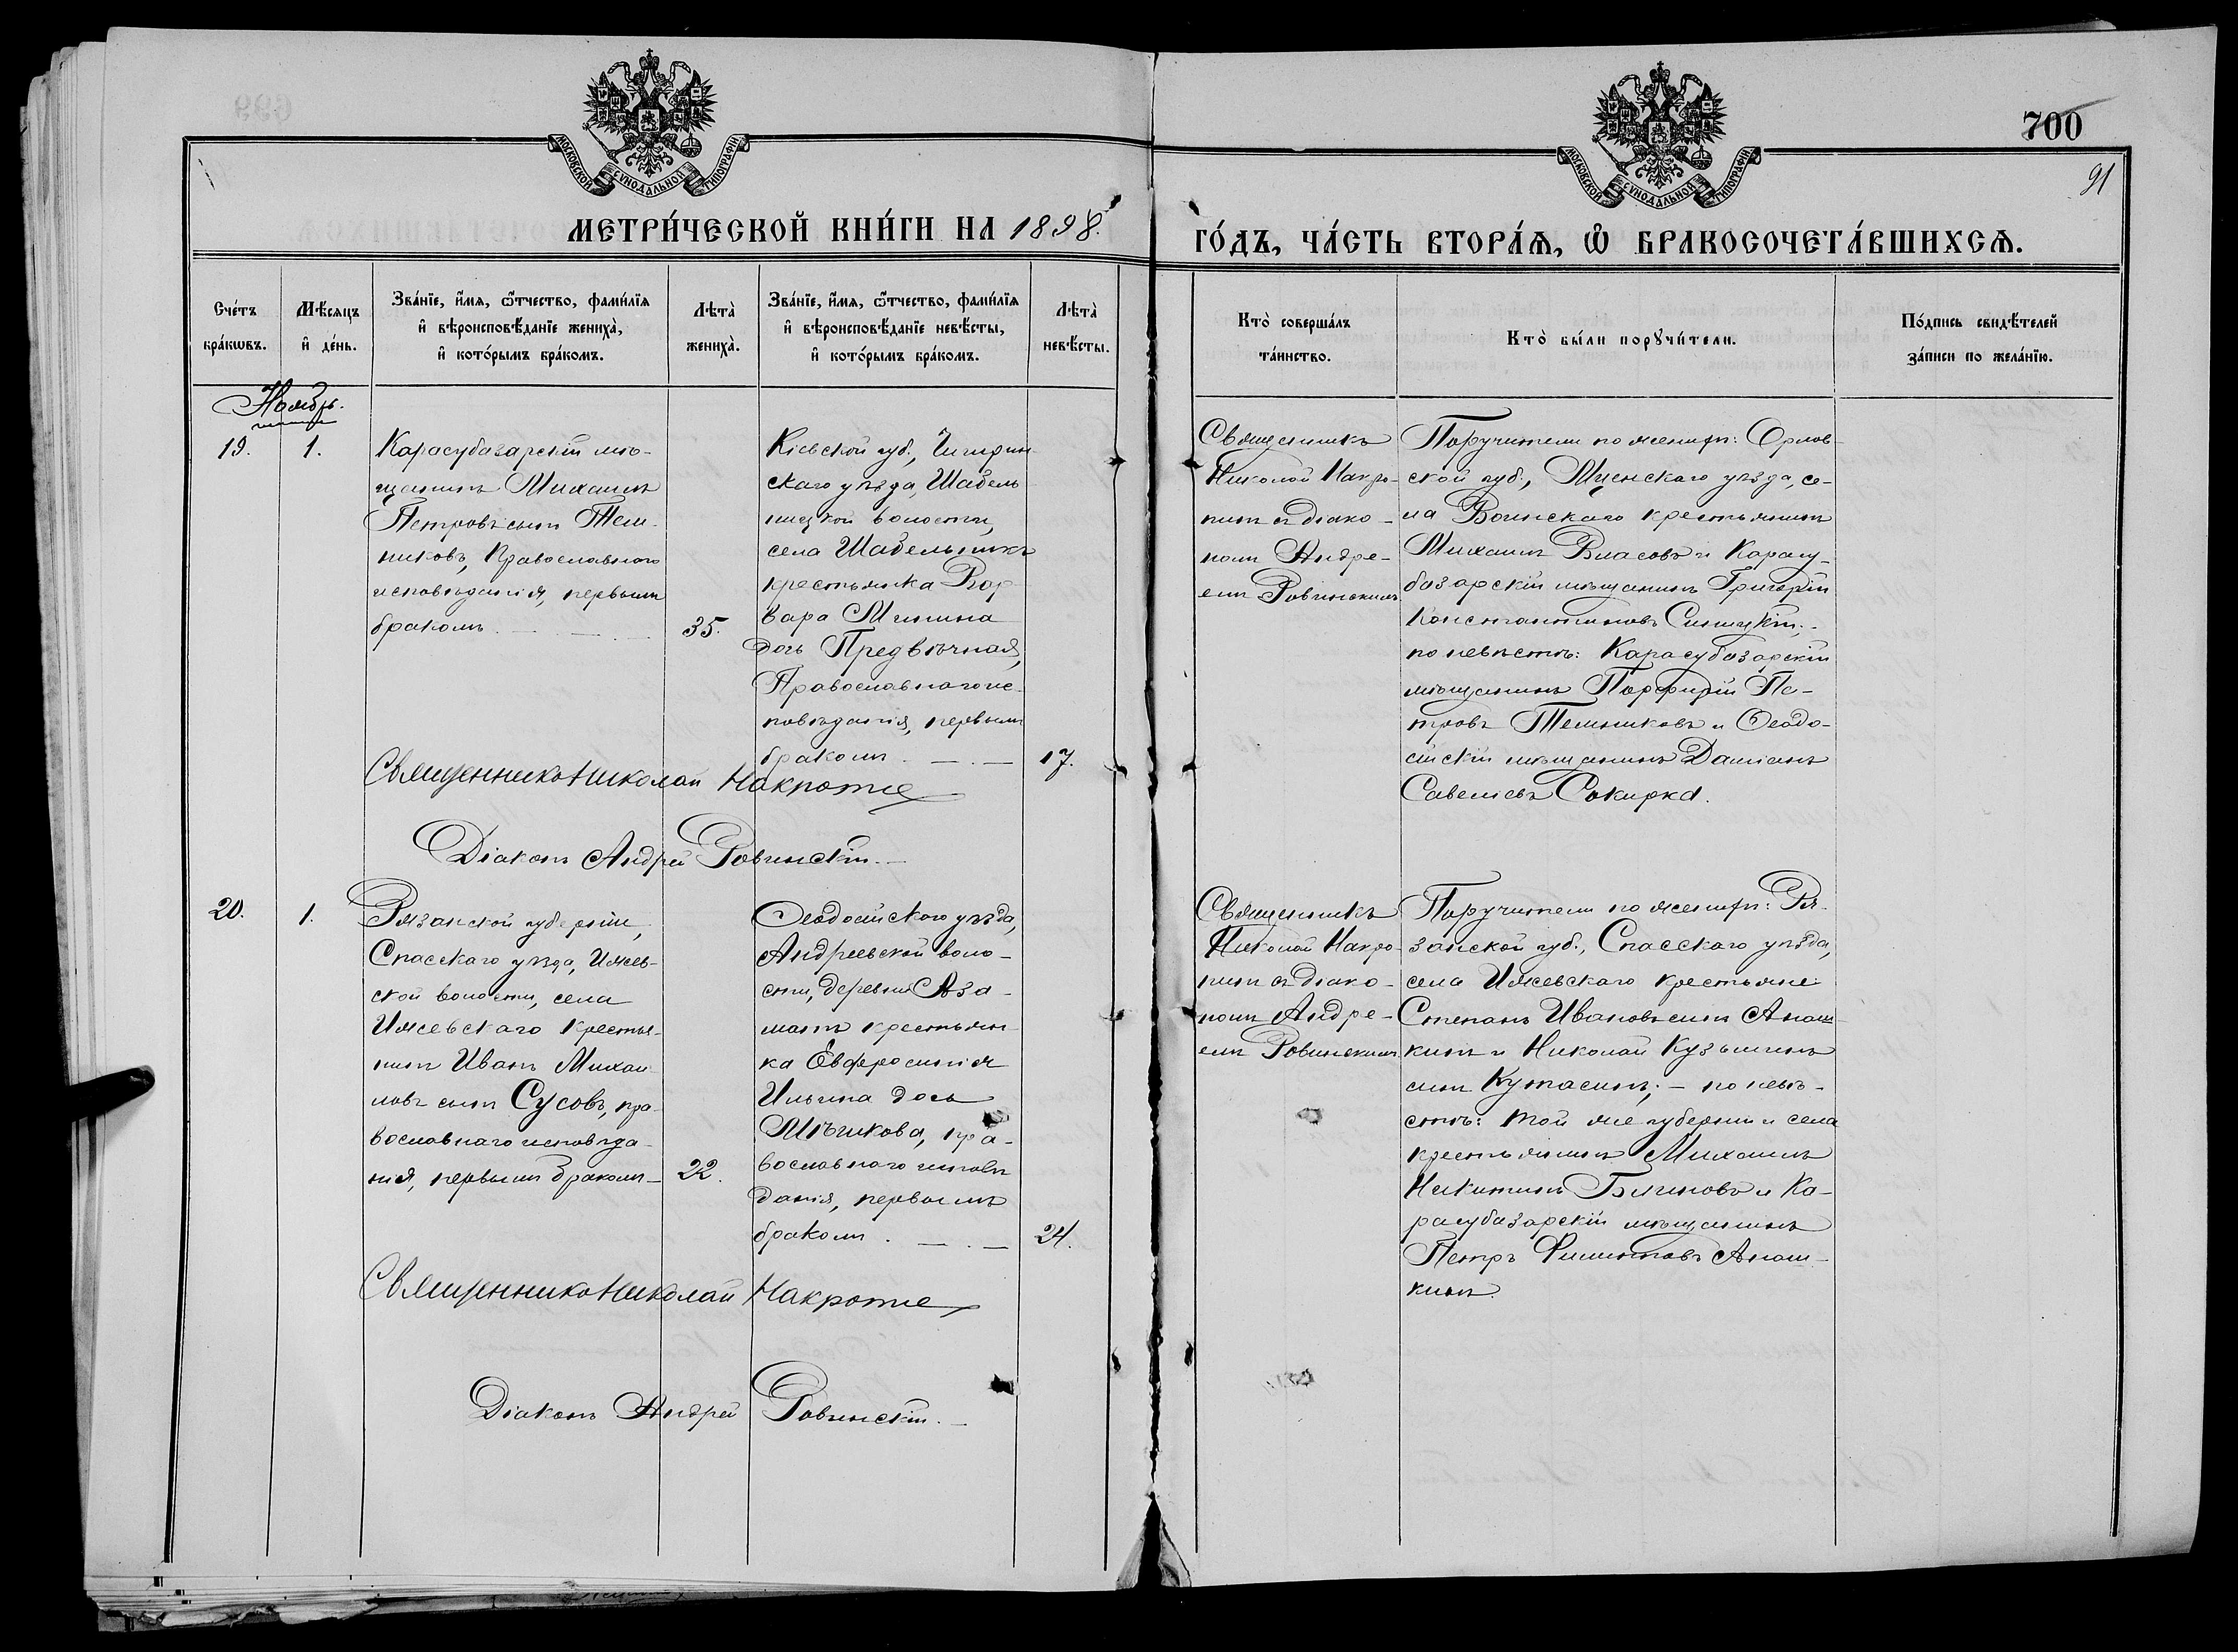 700
91
МОСКОВСКОЙ СѴНОДАЛЬНОЙ ТИПОГРАФІИ
МОСКОВСКОЙ СѴНОДАЛЬНОЙ ТИПОГРАФІИ
МЕТРИ́ЧЕСКОЙ КНИ́ГИ НА 1898.
ГО́ДЪ, ЧА́СТЬ ВТОРА́Ѧ, Ѽ БРАКОСОЧЕТА́ВШИХСѦ.
Сче́тъ бра́кѡвъ.
Мѣ́сяцъ и҆ де́нь.
Зва́нїе, и҆́мя, ѻ҆́тчество, фами́лїя
и҆ вѣроисповѣ́данїе жениха̀,
и҆ кото́рымъ бра́комъ.
Лѣта̀ жениха̀.
Зва́нїе, и҆́мя, ѻ҆́тчество, фами́лїя
и҆ вѣроисповѣ́данїе невѣ́сты,
и҆ кото́рымъ бра́комъ.
Лѣта̀ невѣ́сты.
Кто̀ соверша́лъ
та́инство.
Кто̀ бы́ли порꙋчи́тели.
По́дпись свидѣ́телей
за́писи по жела́нїю.
Ноябрь.
19.
1.
Карасубазарскій мѣ-
щанинъ Михаилъ
Петровъ сынъ Тем-
никовъ, Православнаго
исповѣданія, первымъ
бракомъ.
35.
Кіевской губ., Чигирин-
скаго уѣзда, Шабель
ницкой волости,
села Шабельникъ
крестьянка Вар-
вара Минина
дочь Предвѣчная,
Православнаго ис-
повѣданія, первымъ
бракомъ.
17.
Священникъ
Николай Накро-
пинъ съ діако-
номъ Андре-
емъ Ровинскимъ
Поручители по женихѣ: Орлов-
ской губ., Мценскаго уѣзда, се-
ла Воинскаго крестьянинъ
Михаилъ Власовъ и Карасу-
базарскій мѣщанинъ Григорій
Константиновъ
по невѣстѣ: Карасубазарскій
мѣщанинъ Порфирій Пе-
тровъ Темниковъ и Ѳеодо-
сійскій мѣщанинъ Даміанъ
Савеліевъ Сокирка.
Священникъ Николай
Діаконъ Андрей Ровинскій.
20.
1.
Рязанской губерніи,
Спасскаго уѣзда, Ижев-
ской волости, села
Ижевскаго крестья-
нинъ Иванъ Михаи
ловъ сынъ Сусовъ, пра-
вославнаго исповѣда-
нія, первымъ бракомъ
22.
Ѳеодосійскаго уѣзда,
Андреевской воло-
сти, деревни Аза-
матъ крестьян-
ка Евфросинія
Ильина дочь
Мѣчикова, пра-
вославнаго исповѣ
данія, первымъ
бракомъ.
24.
Священникъ
Николай Накро-
пинъ съ діако-
номъ Андре-
емъ Ровинскимъ
Поручители по женихѣ: Ря-
занской губ., Спасскаго уѣзда,
села Ижевскаго крестьяне:
Степанъ Ивановъ сынъ Анаш
кинъ и Николай Кузьминъ
сынъ Кутасинъ; – по невѣ-
стѣ: той же губерніи и села
крестьянинъ Михаилъ
Никитинъ Блиновъ и Ка-
расубазарскій мѣщанинъ
Петръ Филиповъ Анаш-
кинъ.
Священникъ Николай
Діаконъ Андрей Ровинскій.